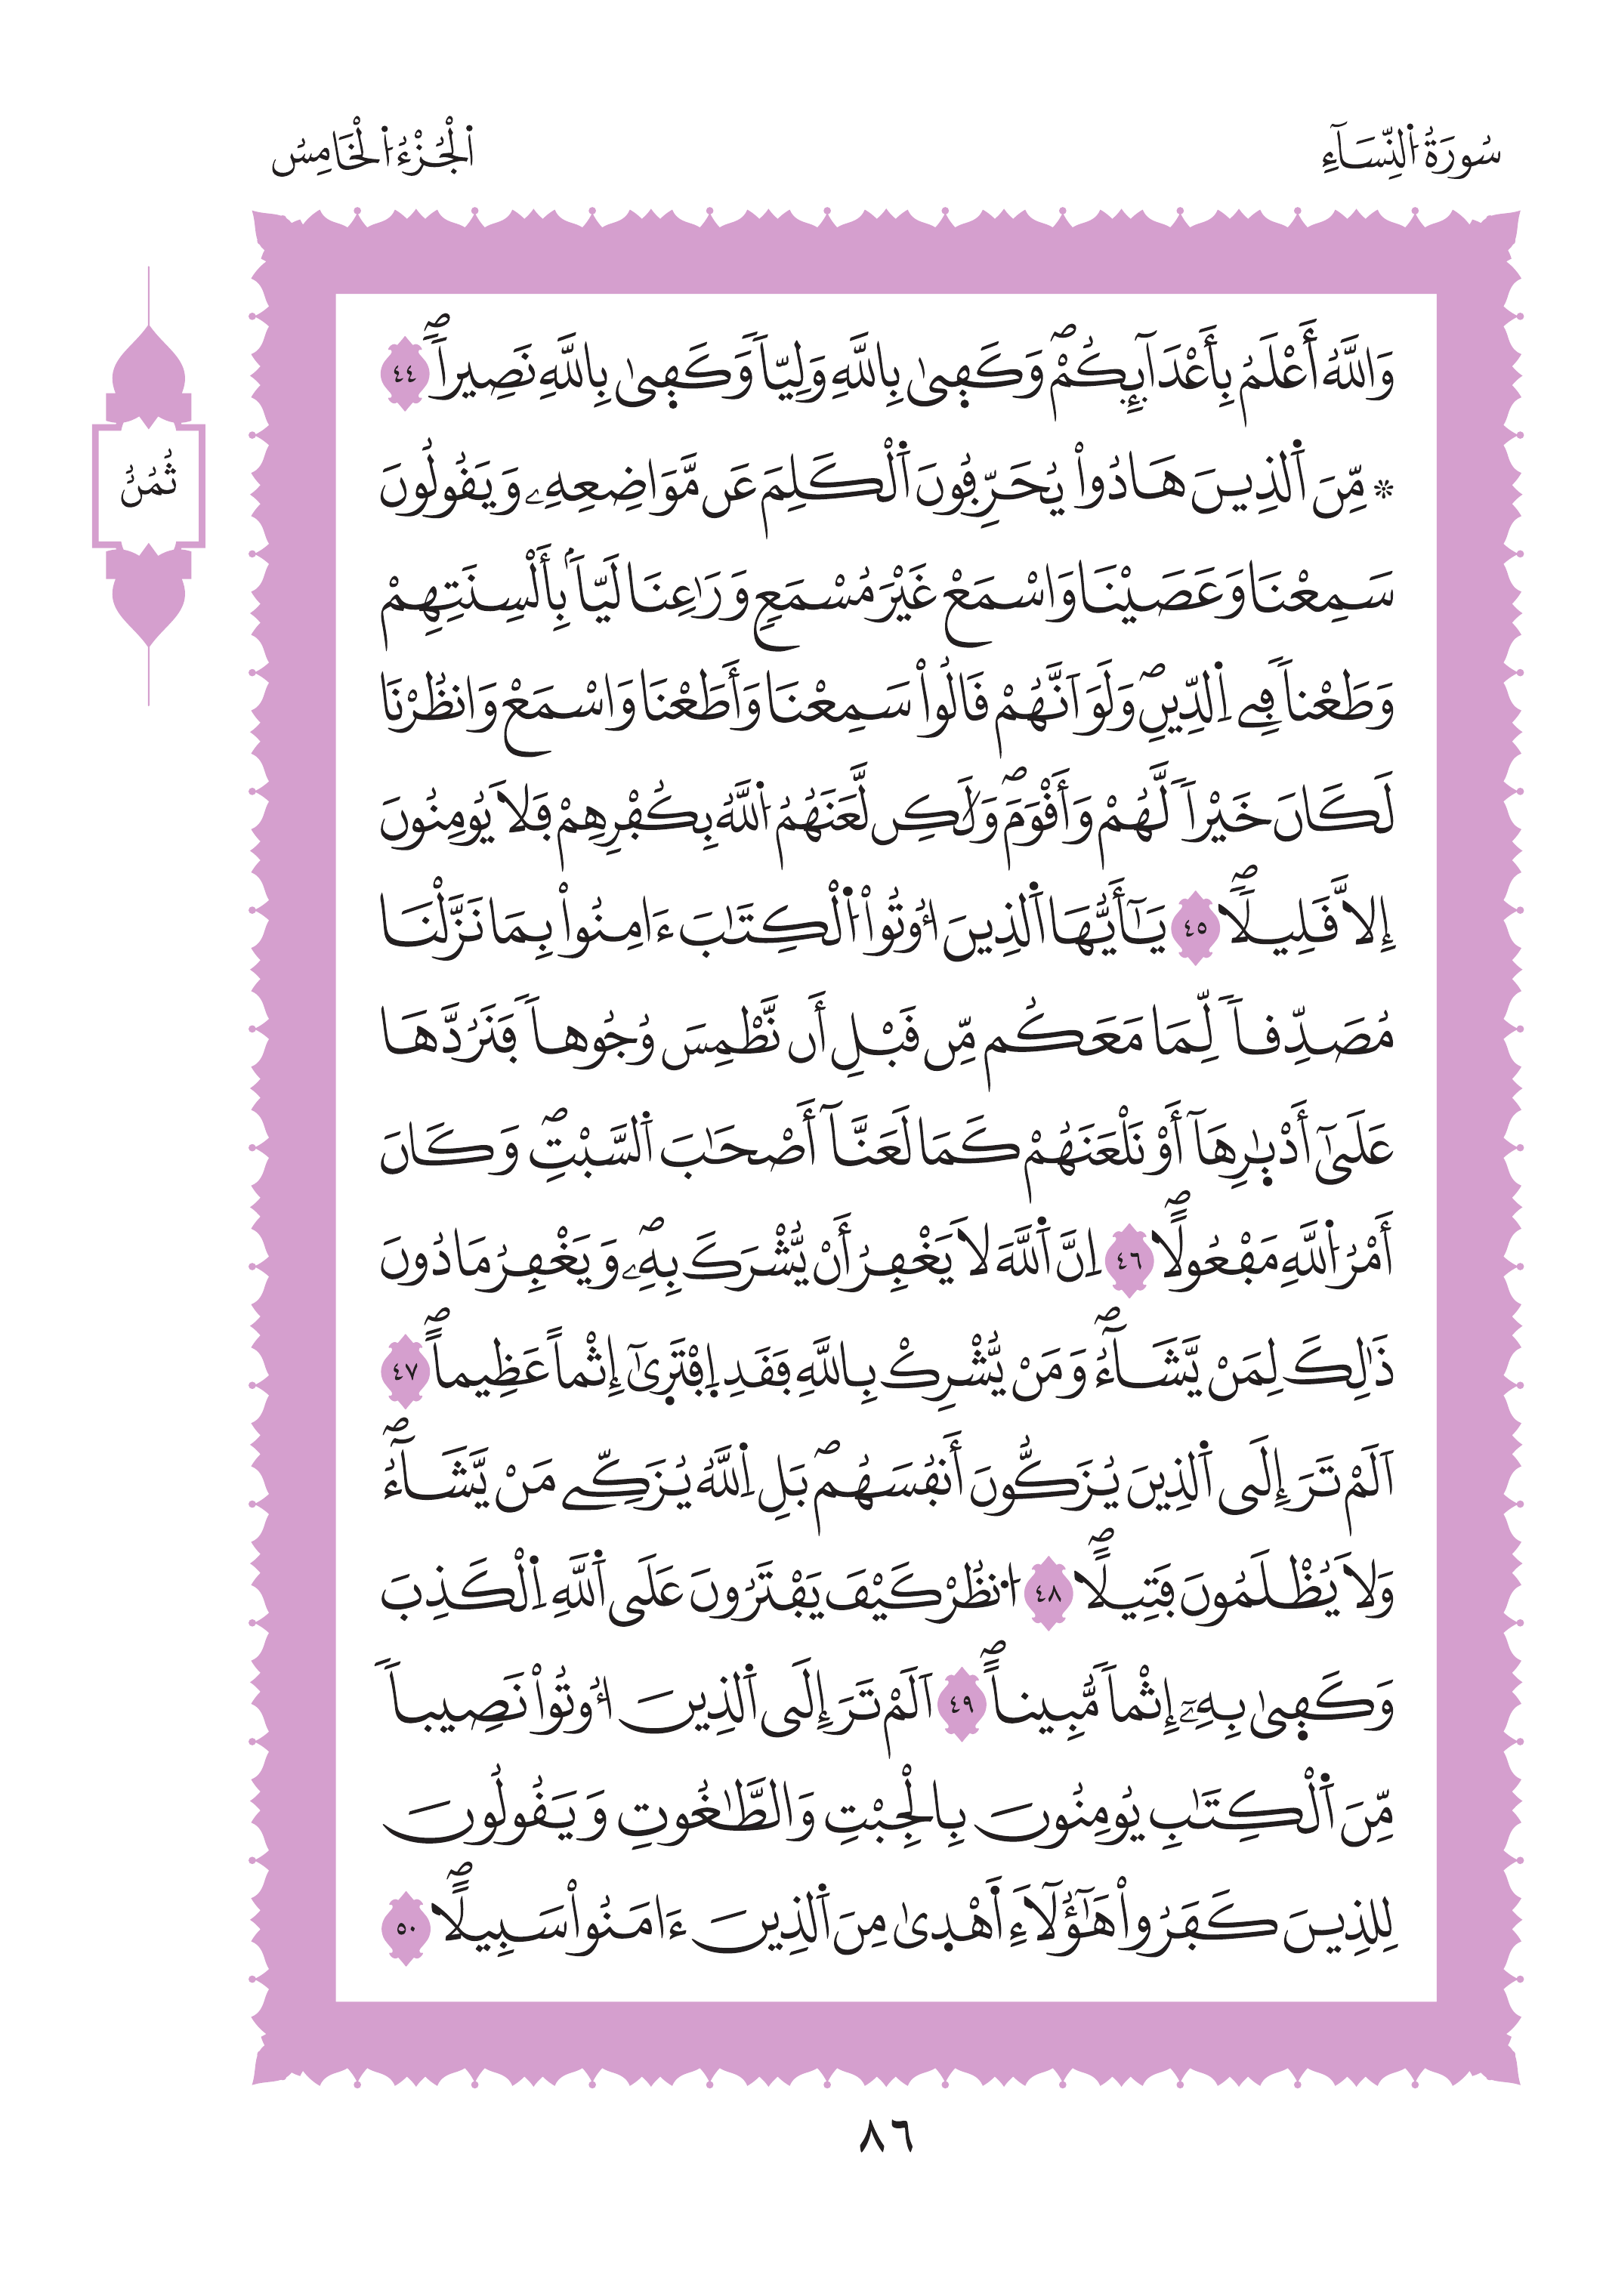 سُورَةُ اُ۬لنِّسَآءِ
اَ۬لْجُزْءُ اُ۬لْخَامِسُ
وَاللَّهُ أَعْلَمُ بِأَعْدَآئِكُمْۖ وَكَف۪ىٰ بِاللَّهِ وَلِيّاٗ وَكَف۪ىٰ بِاللَّهِ نَصِيراٗۖ ٤٤
ثُمُنُ
۞ مِّنَ اَ۬لذِينَ هَادُواْ يُحَرِّفُونَ اَ۬لْكَلِمَ عَن مَّوَاضِعِهِۦ وَيَقُولُونَ
سَمِعْنَا وَعَصَيْنَا وَاسْمَعْ غَيْرَ مُسْمَعٖ وَرَٰعِنَا لَيّاَۢ بِأَلْسِنَتِهِمْ
وَطَعْناٗ فِے اِ۬لدِّينِۖ وَلَوَ اَنَّهُمْ قَالُواْ سَمِعْنَا وَأَطَعْنَا وَاسْمَعْ وَانظُرْنَا
لَكَانَ خَيْراٗ لَّهُمْ وَأَقْوَمَۖ وَلَٰكِن لَّعَنَهُمُ اُ۬للَّهُ بِكُفْرِهِمْ فَلَا يُومِنُونَ
إِلَّا قَلِيلاٗۖ ٤٥ يَٰٓأَيُّهَا اَ۬لذِينَ أُوتُواْ اُ۬لْكِتَٰبَ ءَامِنُواْ بِمَا نَزَّلْنَا
مُصَدِّقاٗ لِّمَا مَعَكُم مِّن قَبْلِ أَن نَّطْمِسَ وُجُوهاٗ فَنَرُدَّهَا
عَلَىٰٓ أَدْبٰ۪رِهَآ أَوْ نَلْعَنَهُمْ كَمَا لَعَنَّآ أَصْحَٰبَ اَ۬لسَّبْتِۖ وَكَانَ
أَمْرُ اُ۬للَّهِ مَفْعُولاًۖ ٤٦ اِنَّ اَ۬للَّهَ لَا يَغْفِرُ أَنْ يُّشْرَكَ بِهِۦۖ وَيَغْفِرُ مَا دُونَ
ذَٰلِكَ لِمَنْ يَّشَآءُۖ وَمَنْ يُّشْرِكْ بِاللَّهِ فَقَدِ اِ۪فْتَر۪ىٰٓ إِثْماً عَظِيماًۖ ٤٧
اَلَمْ تَرَ إِلَى اَ۬لذِينَ يُزَكُّونَ أَنفُسَهُمۖ بَلِ اِ۬للَّهُ يُزَكِّے مَنْ يَّشَآءُۖ
وَلَا يُظْلَمُونَ فَتِيلاًۖ ٤٨ اُ۟نظُرْ كَيْفَ يَفْتَرُونَ عَلَى اَ۬للَّهِ اِ۬لْكَذِبَ
وَكَف۪ىٰ بِهِۦٓ إِثْماٗ مُّبِيناًۖ ٤٩ اَلَمْ تَرَ إِلَى اَ۬لذِينَ أُوتُواْ نَصِيباٗ
مِّنَ اَ۬لْكِتَٰبِ يُومِنُونَ بِالْجِبْتِ وَالطَّٰغُوتِ وَيَقُولُونَ
لِلذِينَ كَفَرُواْ هَٰٓؤُلَآءِ اَ۬هْد۪ىٰ مِنَ اَ۬لذِينَ ءَامَنُواْ سَبِيلاًۖ ٥٠
٨٦